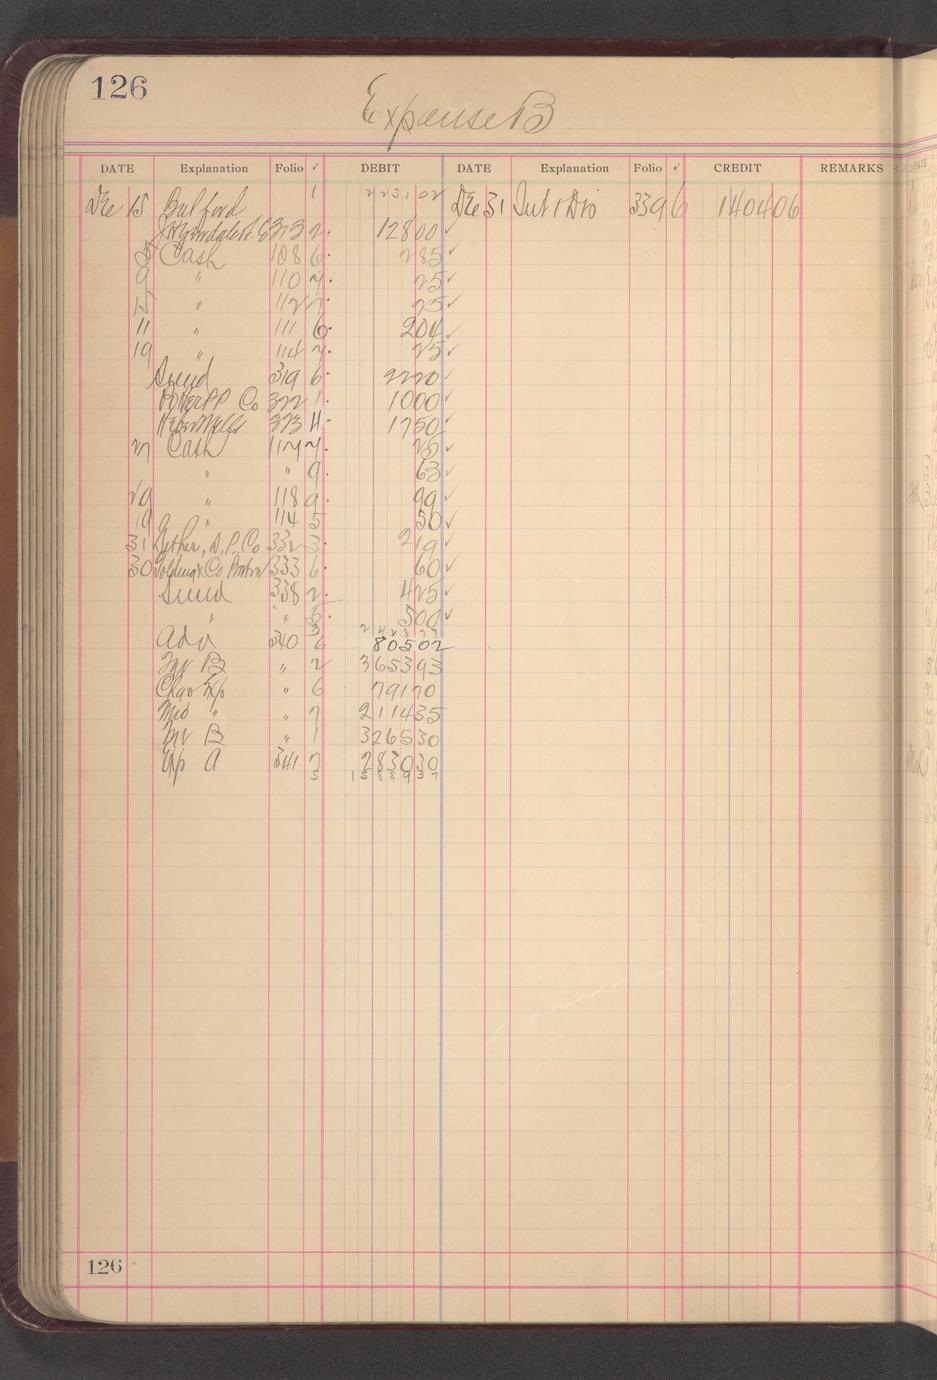 126
Expense B
DATE Explanation Folio ✓ DEBIT DATE Explanation Folio ✓ CREDIT REMARKS
Dec 15 Balford 1 2231 02 Dec 31 339 6 1404 06
373 2 128 00 ✓
5 Cash 108 6 2 85 ✓
9 " 110 7 25 ✓
15 " 112 7 25 ✓
11 " 111 6 2 04 ✓
19 " 114 7 25 ✓
Sund 319 6 22 20 ✓
Co 322 1 10 00 ✓
323 4 17 50 ✓
27 Cash 117 7 25 ✓
" " 9 63 ✓
29 " 118 9 99 ✓
19 " 114 5 50 ✓
31 Co 332 3 2 19 ✓
30 Co 333 6 60 ✓
Sund 338 2 4 25 ✓
" " 5 5 00 ✓
3
Adv 340 6 805 02
Inv B " 2 3653 93
Exp " 6 791 70
" " 7 2114 35
Inv B " 1 3265 30
Exp A 341 7 2830 30
5 15889 37
126